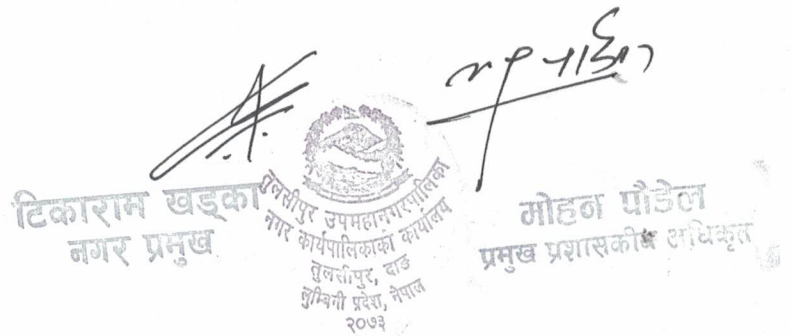 टिकाराम खड्का
नगर प्रमुख
तुलसीपुर उपमहानगरपालिका
नगर कार्यपालिकाको कार्यालय
तुलसीपुर, दाङ
लुम्बिनी प्रदेश, नेपाल
२०७३
मोहन पौडेल
प्रमुख प्रशासकीय अधिकृत